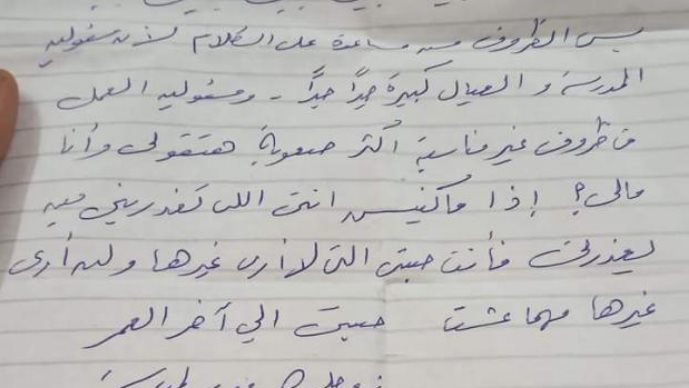 بس الظروف مش مساعدة على الكلام لأن مسئولية
المدرسة و العيال كبيرة جداً جداً - ومسئولية العمل
فى ظروف غير مناسبة أكثر صعوبة هتقولى وأنا
مالى؟ إذا ماكنتيش انتى اللى تعذرينى مين
يعذرنى فأنت حبيبتى التى لا أرى غيرها ولن أرى
غيرها مهما عشت حبيبتى الي آخر العمر